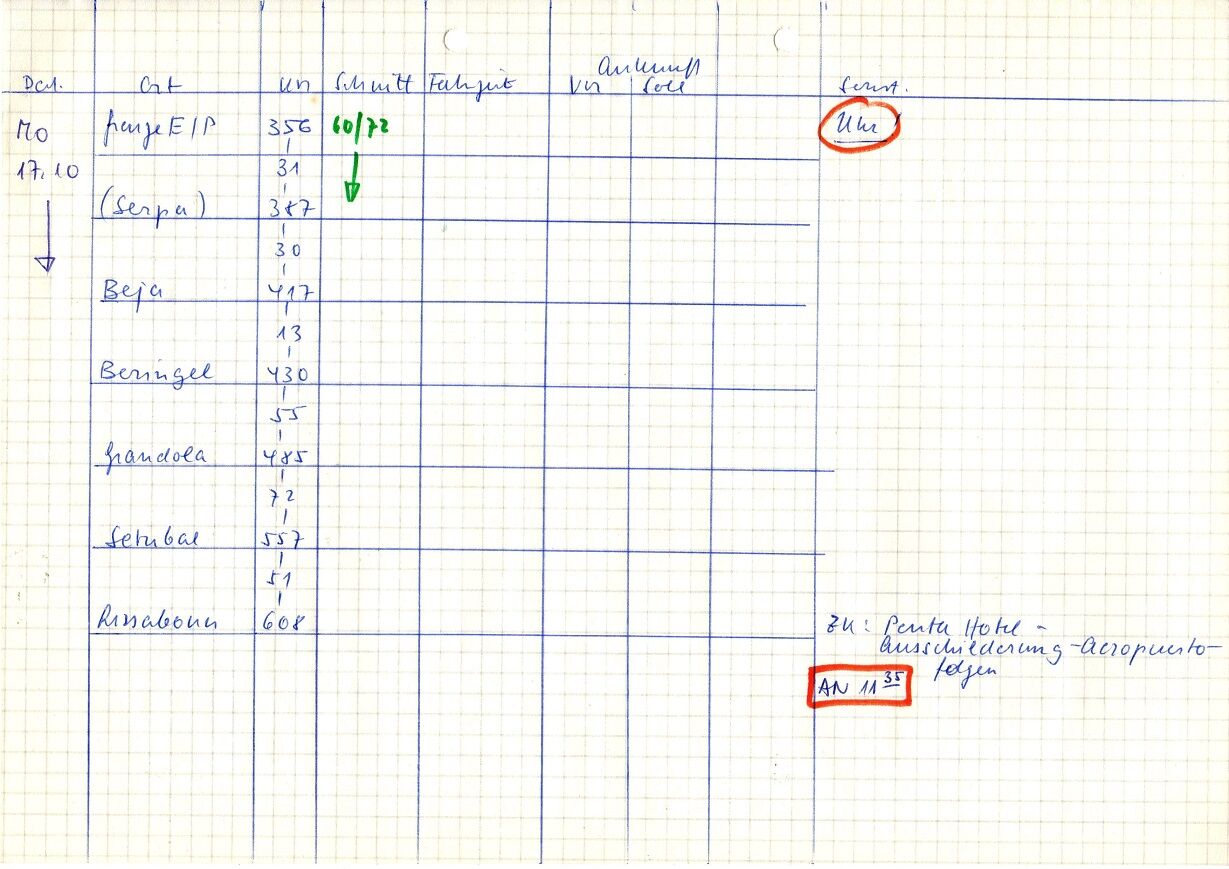 Ankunft
Dat. Ort Km Schnitt Fahrzeit Von Soll Sonst.
Mo Grenze E/P 356 60/72 Uhr!
17.10 31
(Serpa) 387
30
Beja 417
13
Beringel 430
55
Grandola 485
72
Setubal 557
51
Lissabonn 608 ZK: Penta Hotel -
Ausschilderung -Aeropuerto-
folgen
AN 11 35